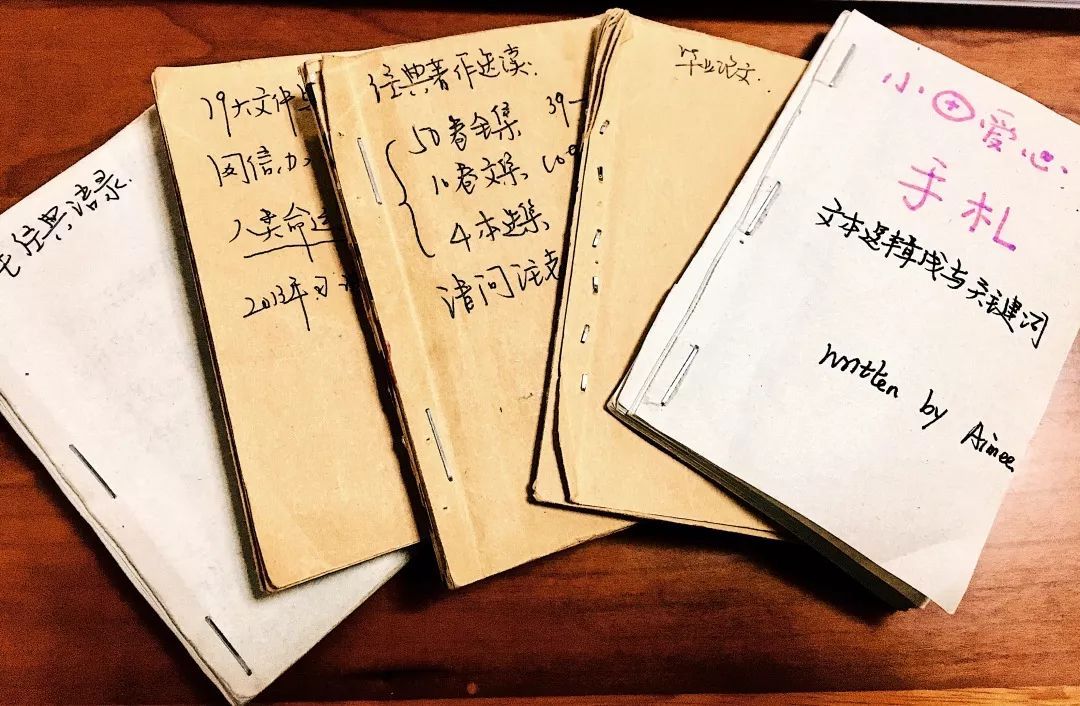 毛经典语录.
19大文件
网信办
人类命运
2013年习
经典著作选读.
50卷全集 39-
10卷文集
4本选集
请问
毕业论文.
小田爱心.
手札
文本逻辑与关键词
written by Aimee